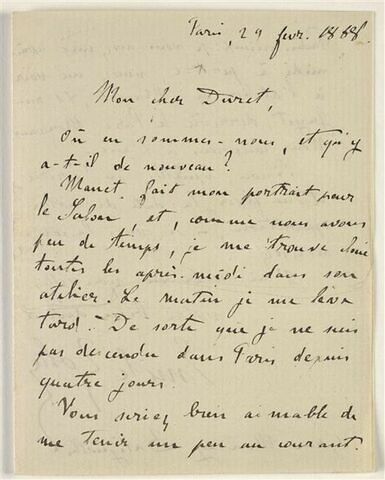 Paris, 29 fevr. 1868.
Mon cher Duret,
Où en sommes-nous, et qu'y
a-t-il de nouveau?
Manet fait mon portrait pour
le Salon, et, comme nous avons
peu de temps, je me trouve
toutes les après-midi dans son
atelier. Le matin je me lève
tard. De sorte que je ne suis
pas descendu dans Paris depuis
quatre jours.
Vous seriez bien aimable de
me tenir un peu au courant.